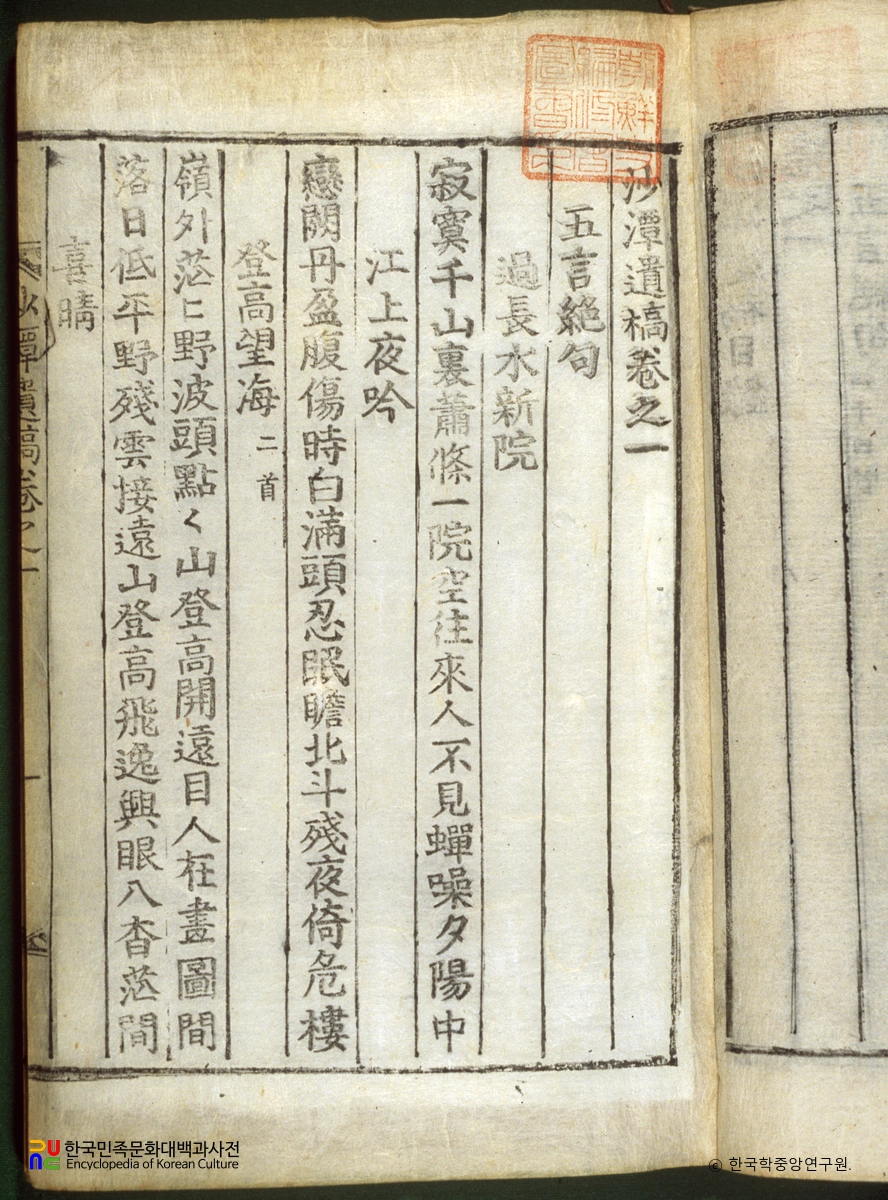 沙潭遺稿卷之一
五言絕句
過長水新院
寂寞千山裏蕭條一院空往來人不見蟬噪夕陽中
江上夜吟
戀闕丹盈腹傷時白滿頭忍眠瞻北斗殘夜倚危樓
登高望海 二首
嶺外茫〻野波頭點〻山登高開遠目人在畫圖間
落日低平野殘雲接遠山登高飛逸興眼入杳茫間
喜晴
沙潭遺稿卷之一
한국민족문화대백과사전
Encyclopedia of Korean Culture
© 한국학중앙연구원.